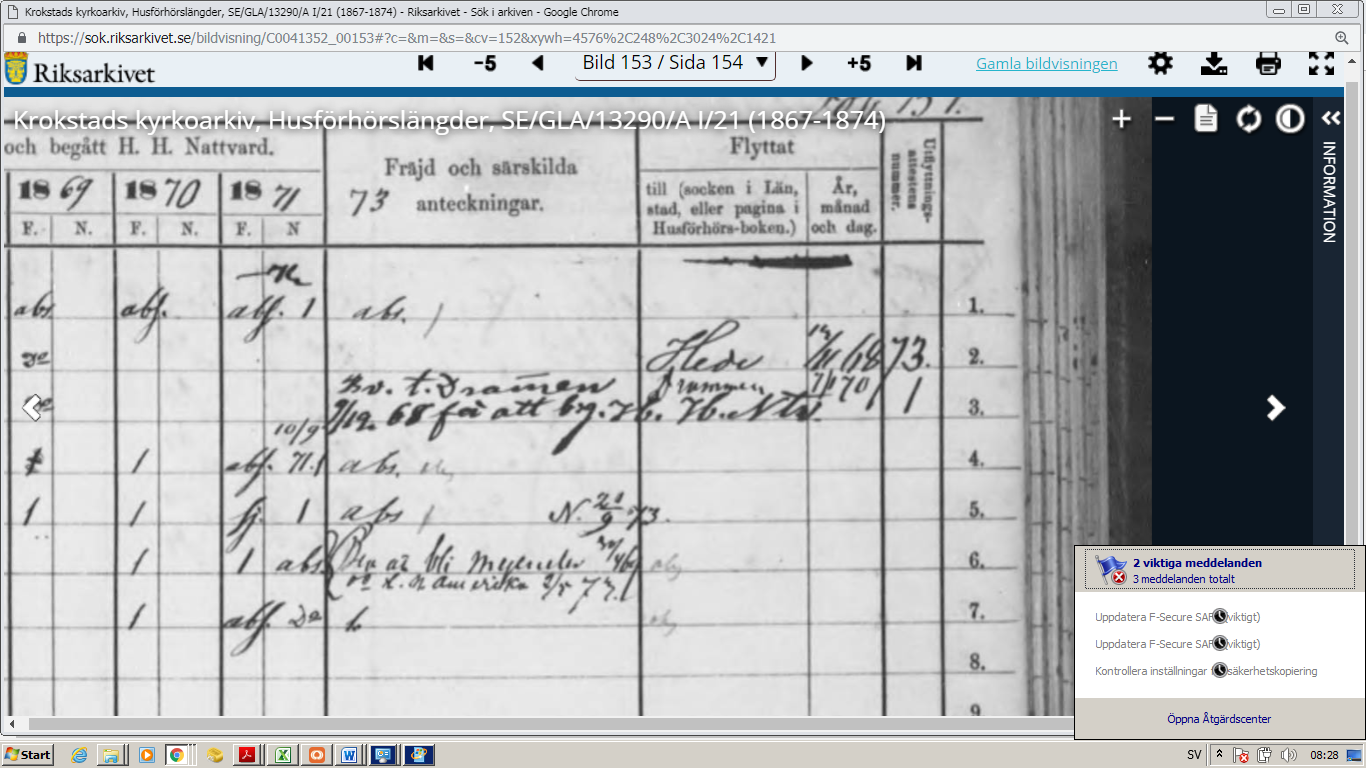 Krokstads kyrkoarkiv, Husförhörslängder, SE/GLA/13290/A I/21 (1867-1874) - Riksarkivet - Sök i arkiven - Google Chrome
https://sok.riksarkivet.se/bildvisning/C0041352_00153#?c=&m=&s=&cv=152&xywh=4576%2C248%2C3024%2C1421
Riksarkivet
-5
Bild 153 / Sida 154
+5
Gamla bildvisningen
Krokstads kyrkoarkiv, Husförhörslängder, SE/GLA/13290/A I/21 (1867-1874)
INFORMATION
och begått H. H. Nattvard.
1869 1870 1871
F. N. F. N. F. N
73
Fräjd och särskilda
anteckningar.
Flyttat
till (socken i Län,
stad, eller pagina i
Husförhörs-boken.)
År,
månad
och dag.
Utflyttnings-
attestens
nummer.
abs. abs. abs. 1 abs. 1.
Hede 68 73. 2.
t. Dramen Drammen 70 1
68 för att 3.
10/9
1 abs. 71.1 abs. 4.
1 1 1 abs N. 21/9 73. 5.
1 1 abs bli 6.
n America 73.
1 abs. Do 7.
8.
9
2 viktiga meddelanden
3 meddelanden totalt
Uppdatera F-Secure SAF viktigt)
Uppdatera F-Secure SAF viktigt)
Kontrollera inställningar säkerhetskopiering
Öppna Åtgärdscenter
Start
SV
08:28